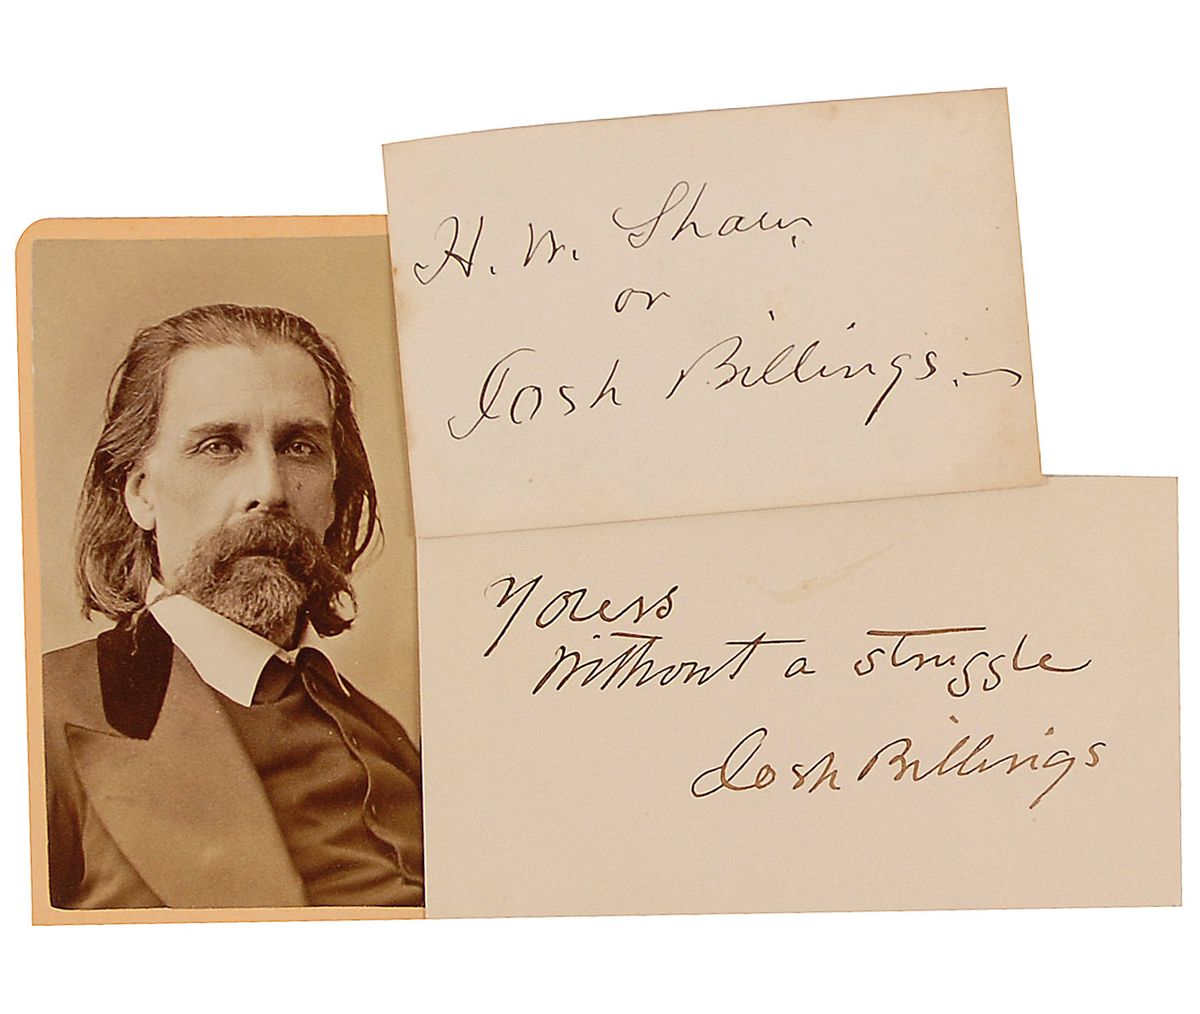 H. W. Shaw.
or
Josh Billings.
Yours
without a struggle
Josh Billings